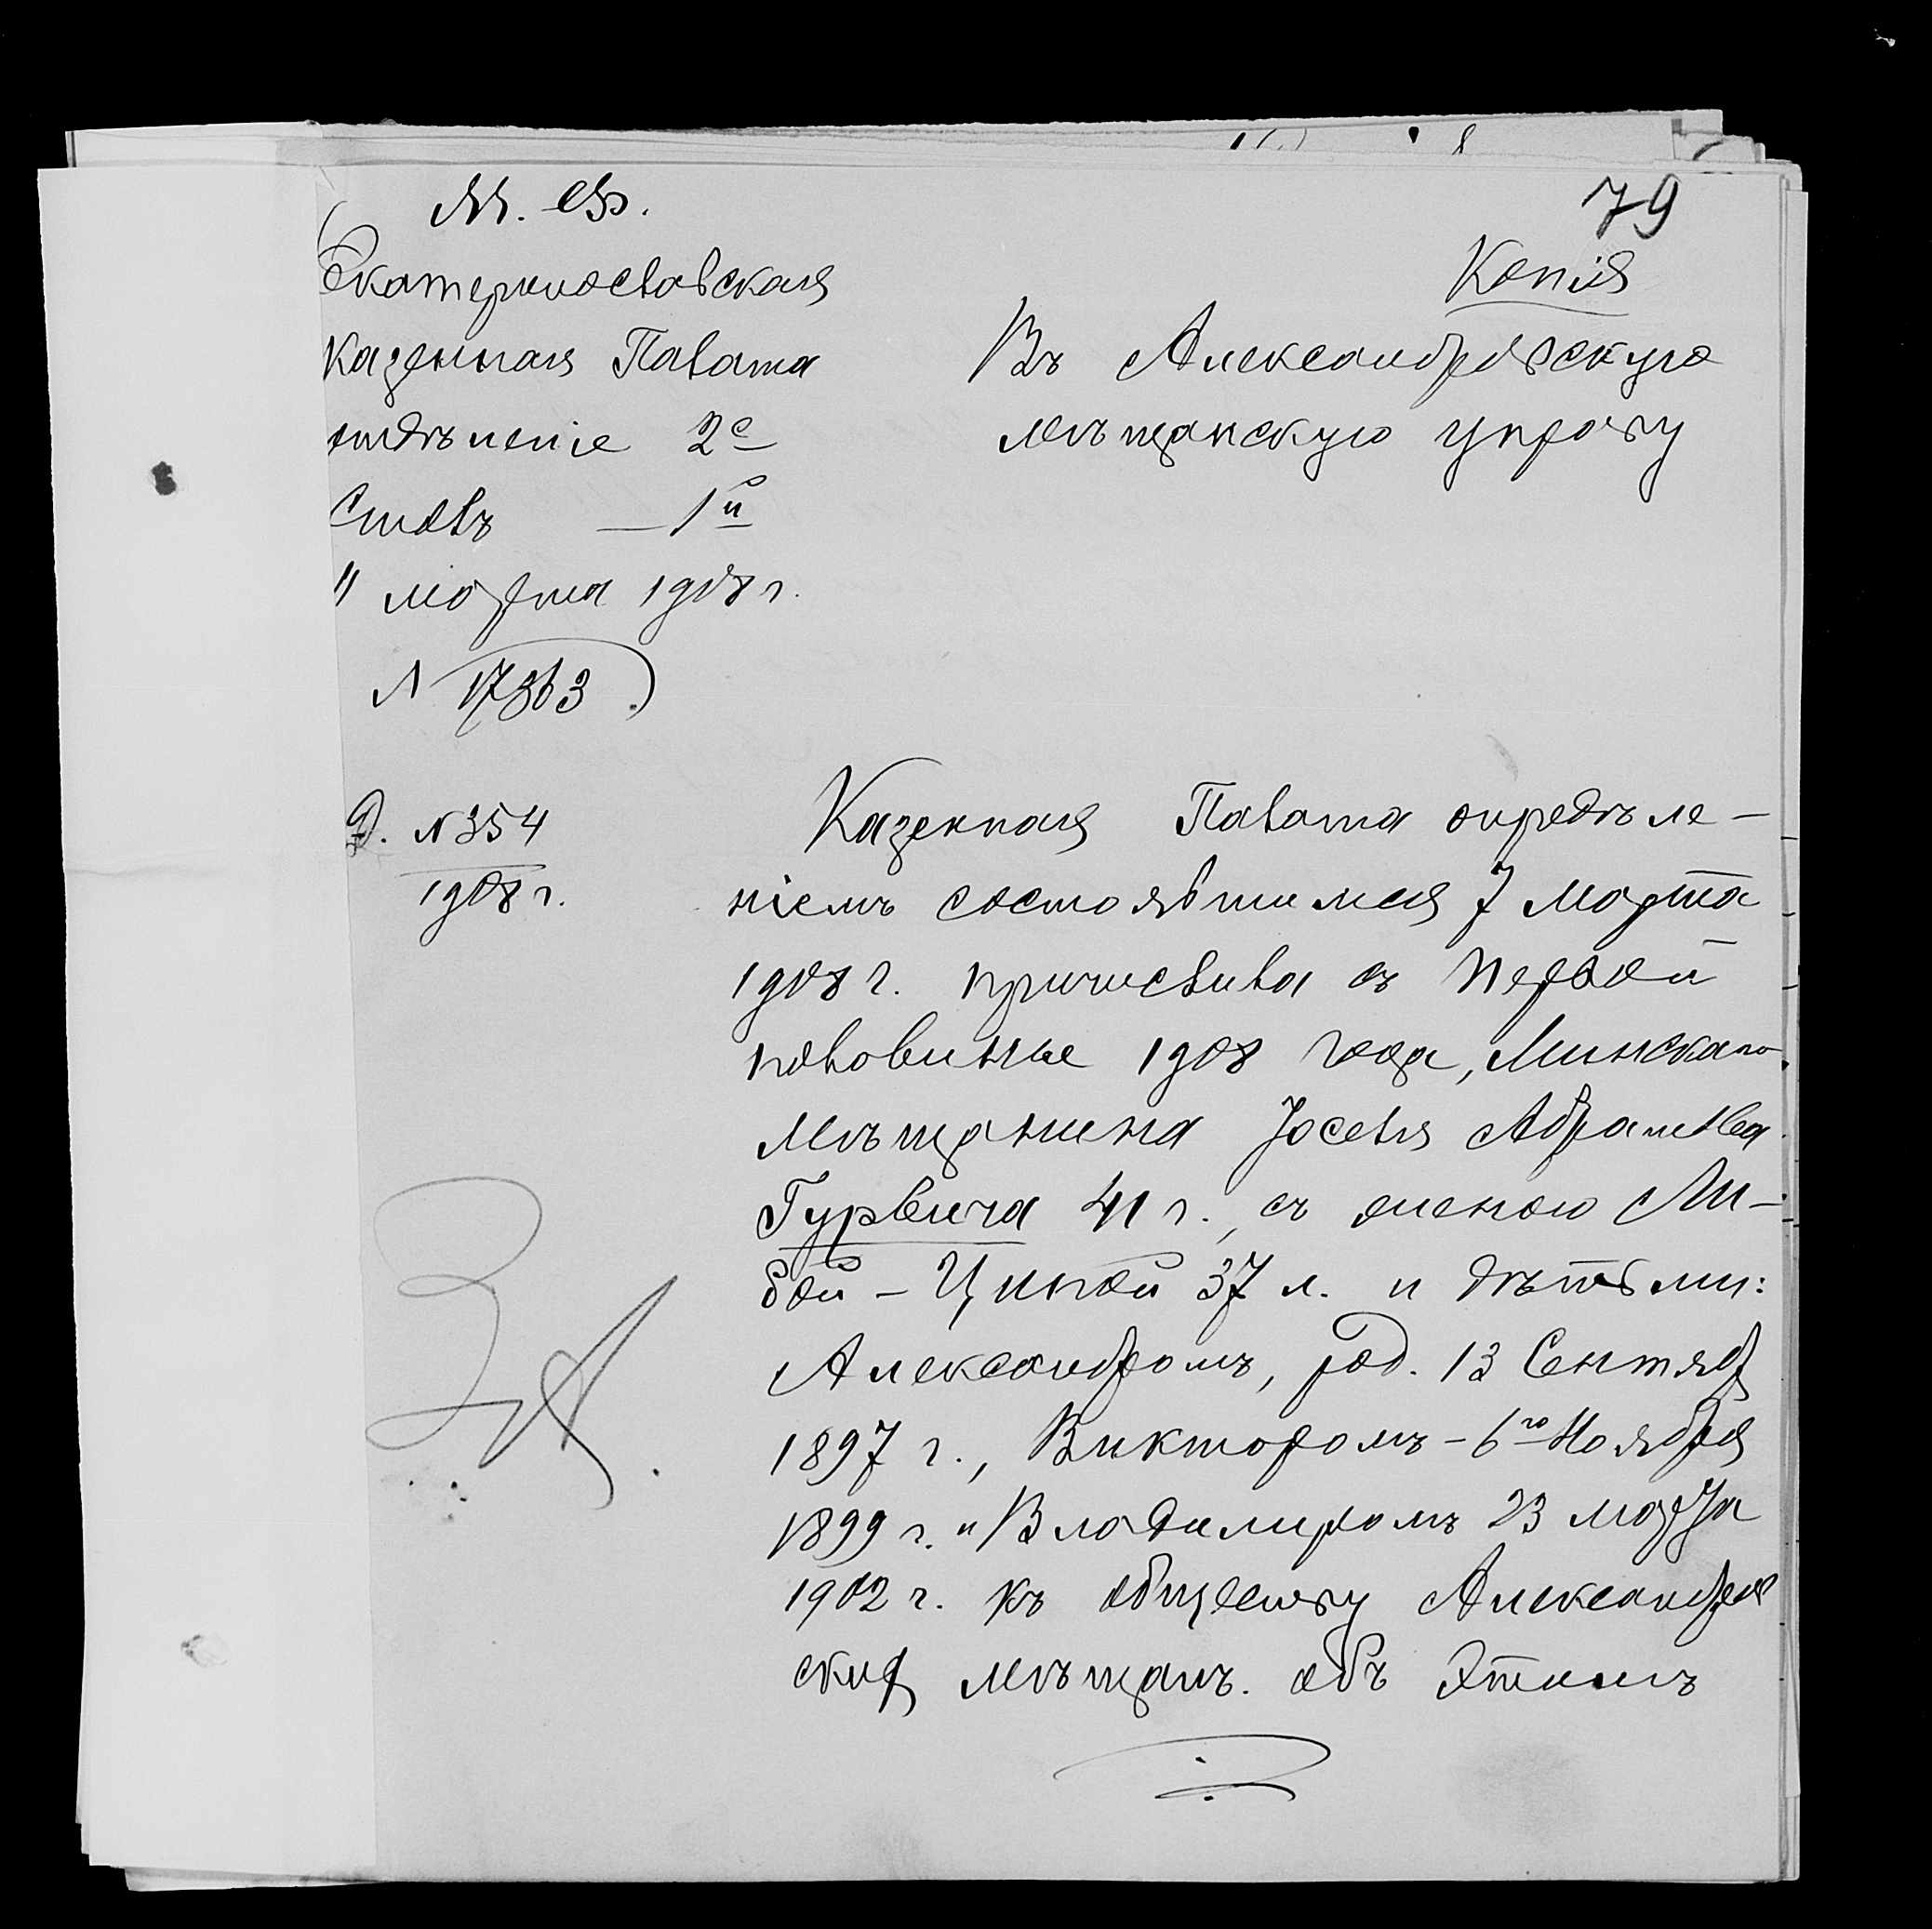 М. Ф.
79
Екатеринославская
Казенная Палата
отдѣленіе 2е
Столъ — 1й
" марта 1908 г.
N 17363
Д. N 354
1908 г.
Копія
Въ Александровскую
мѣщанскую управу
Казенная Палата опредѣле-
ніемъ состоявшимся 7 Марта
1908 г. причислила съ первой
половины 1908 года, Минскаго
мѣщанина Іоселя Абрамова
Гурвича 41 г., съ женою Ли-
бой - Ципой 37 л. и дѣтьми:
Александромъ, род. 13 Сентяб
1897 г., Викторомъ - 6го Ноября
1899 г. и Владимиромъ 23 марта
1902 г. къ обществу Александров
скихъ мѣщанъ. Объ этомъ